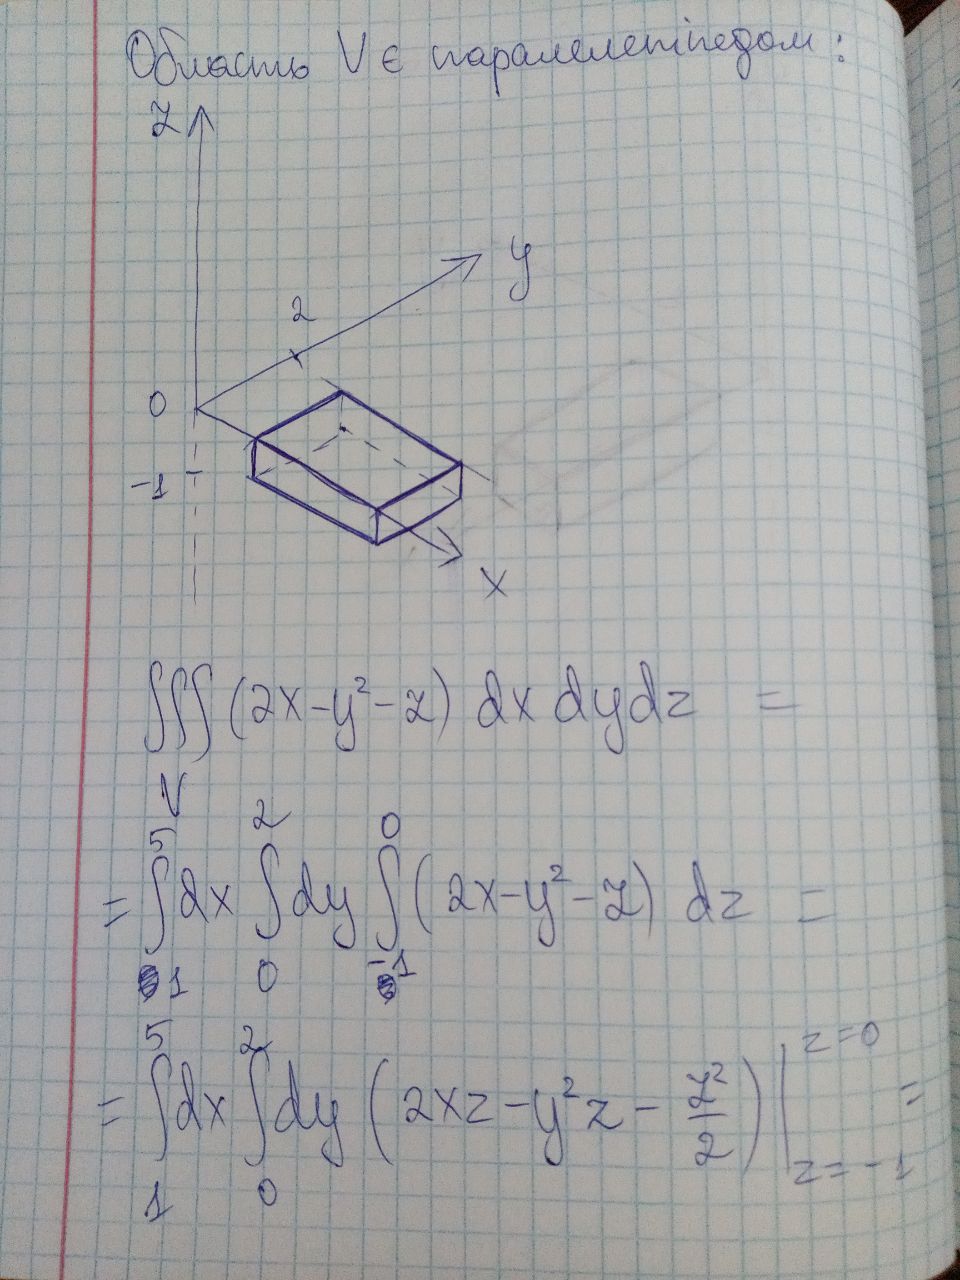 Область V є паралелепіпедом:
z
y
2
0
-1
x
∫∫∫ (2x-y²-z) dx dy dz =
V
= ∫₁⁵ dx ∫₀² dy ∫₋₁⁰ (2x-y²-z) dz =
= ∫₁⁵ dx ∫₀² dy (2xz-y²z-z²/2) |_{z=-1}^{z=0} =